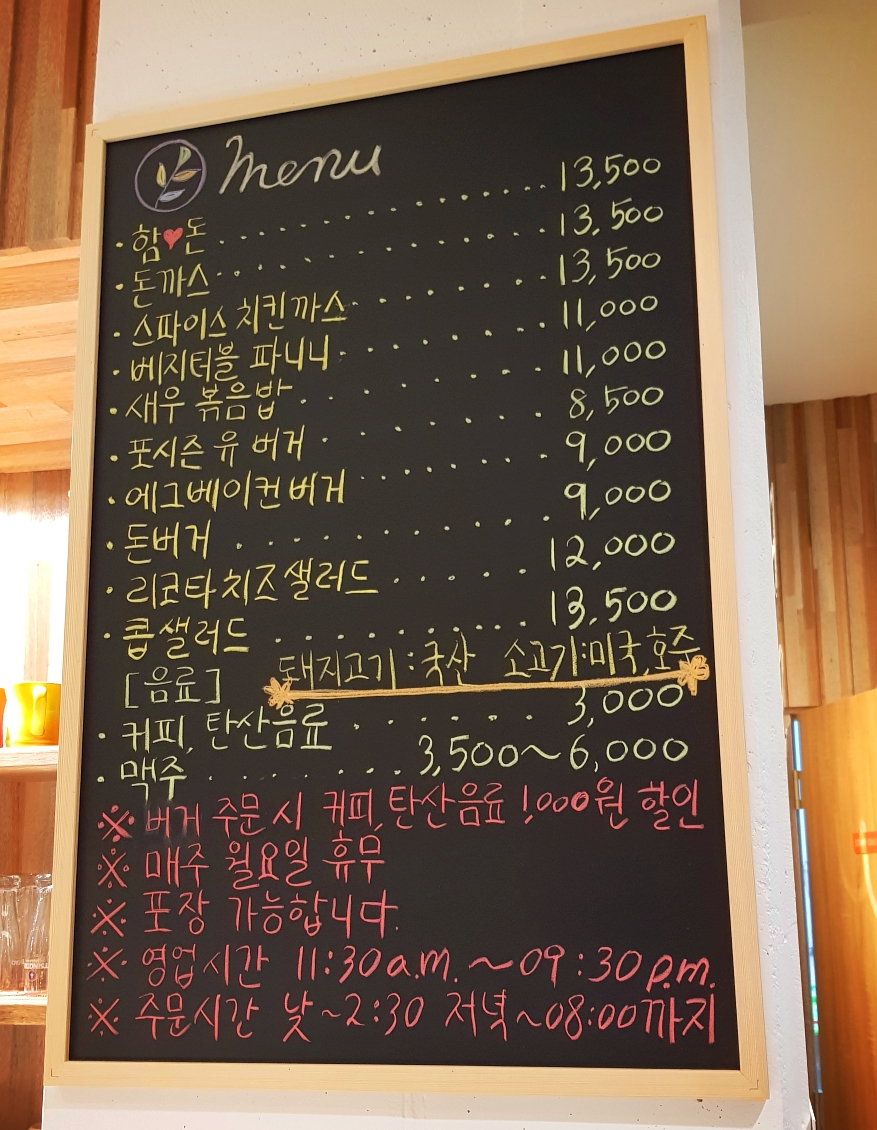 Menu
· 함♥돈 . . . . . . . . . . . . . . . . . 13,500
· 돈까스 . . . . . . . . . . . . . . . . . 13,500
· 스파이스 치킨까스 . . . . . . . . . . 13,500
· 베지터블 파니니 . . . . . . . . . . 11,000
· 새우 볶음밥 . . . . . . . . . . . . 11,000
· 포시즌 유 버거 . . . . . . . . . . 8,500
· 에그베이컨버거 . . . . . . . . . . 9,000
· 돈버거 . . . . . . . . . . . . 9,000
· 리코타치즈샐러드 . . . . . . 12,000
· 콥샐러드 . . . . . . . . . . . 13,500
돼지고기:국산 소고기:미국,호주
[음료]
· 커피, 탄산음료 . . . . . . . 3,000
· 맥주 . . . . . . . . 3,500~6,000
※ 버거 주문시 커피,탄산음료 1,000원 할인
※ 매주 월요일 휴무
※ 포장 가능합니다.
※ 영업시간 11:30a.m.~09:30p.m.
※ 주문시간 낮~2:30 저녁~08:00까지